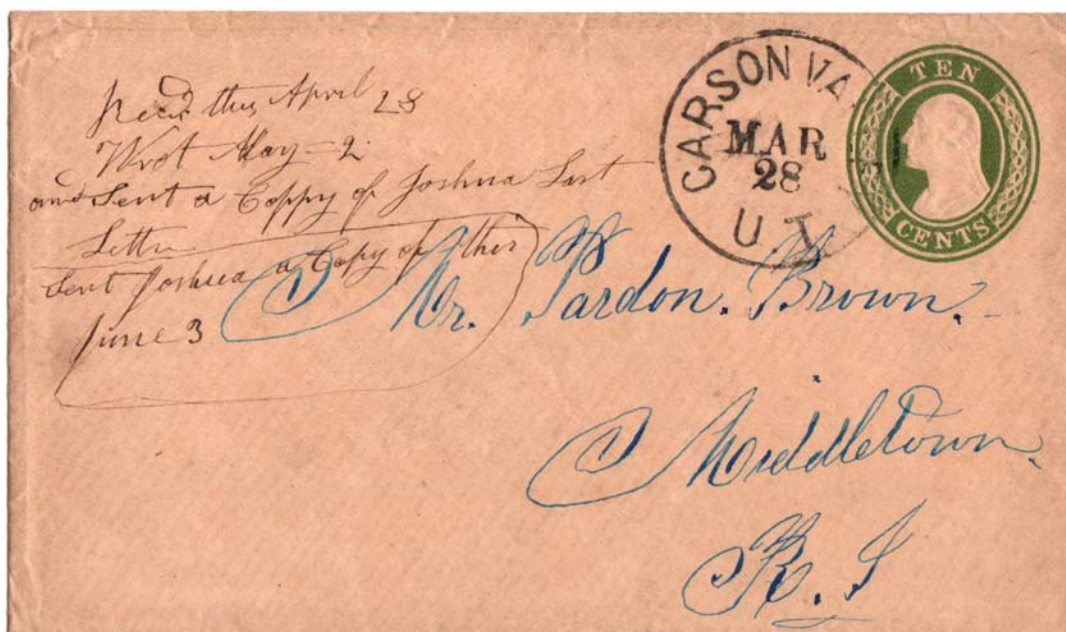 Recd. this April 28
Wrot May = 2
and Sent a Coppy of Joshua Last
Letter
Sent Joshua a Copy of this
June 3
CARSON VA
MAR
28
U.T.
TEN
CENTS
Mr. Pardon. Brown.
Middletown.
R. I